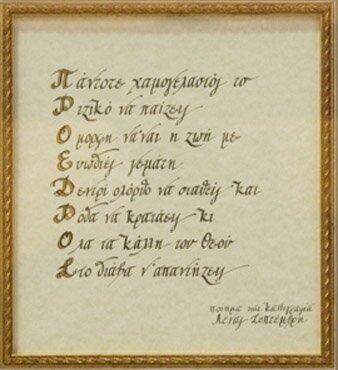 Πάντοτε χαμογελαστός το
Ριζικό νά παίζεις
Όμορφη νά'ναι η ζωή με
Ευωδιές γεμάτη
Δεντρί ολόρθο νά σταθείς και
Ρόδα νά κρατάεις κι
Όλα τα κάλλη του Θεού
Στο διάβα ν' απαντήξεις
ποίημα και καλλιγραφία
Λένας Σεπτέμβρη